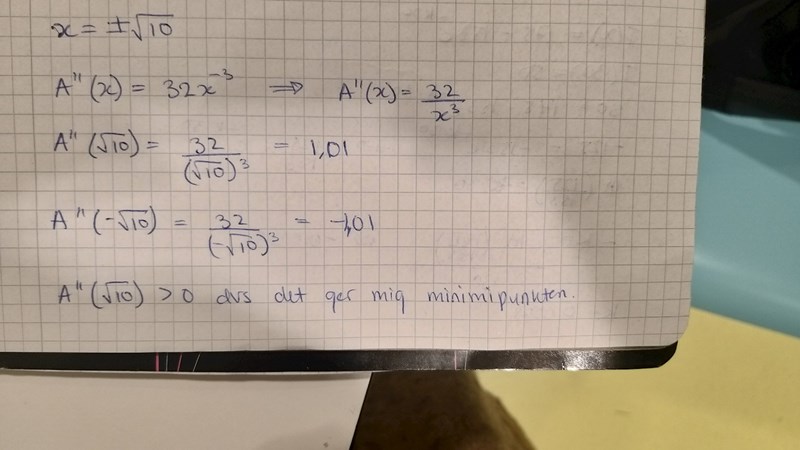 x = ±√10
A''(x) = 32x⁻³ ⟹ A''(x) = 32/x³
A''(√10) = 32/(√10)³ = 1,01
A''(-√10) = 32/(-√10)³ = -1,01
A''(√10) > 0 dvs det ger mig minimipunkten.